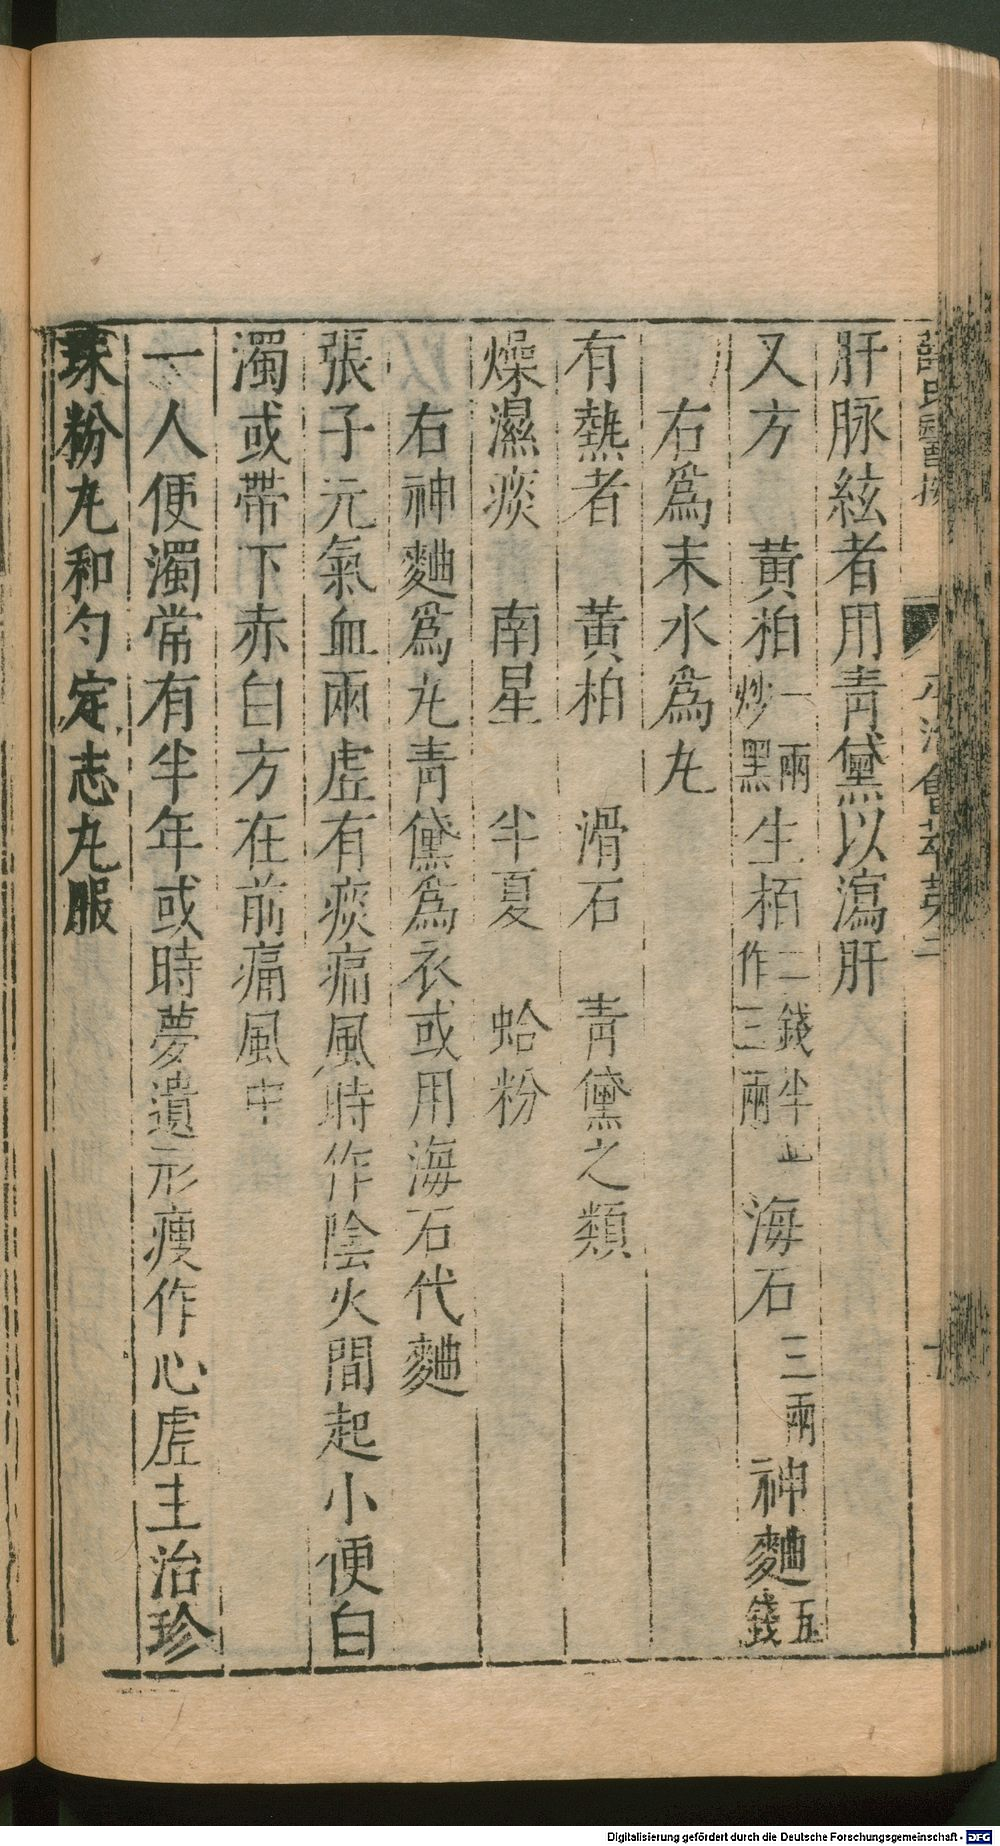 薛氏醫按
肝脉絃者用靑黛以瀉肝
又方 黃柏一兩炒黑 生栢二錢半一作三兩 海石三兩 神麯五錢
右爲末水爲丸
有熱者 黃柏 滑石 靑黛之類
燥濕痰 南星 半夏 蛤粉
右神麯爲丸靑黛爲衣或用海石代麯
張子元氣血兩虛有痰痛風時作陰火間起小便白
濁或帶下赤白方在前痛風中
一人便濁常有半年或時夢遺形瘦作心虛主治珍
珠粉丸和匀定志丸服
Digitalisierung gefördert durch die Deutsche Forschungsgemeinschaft - DFG